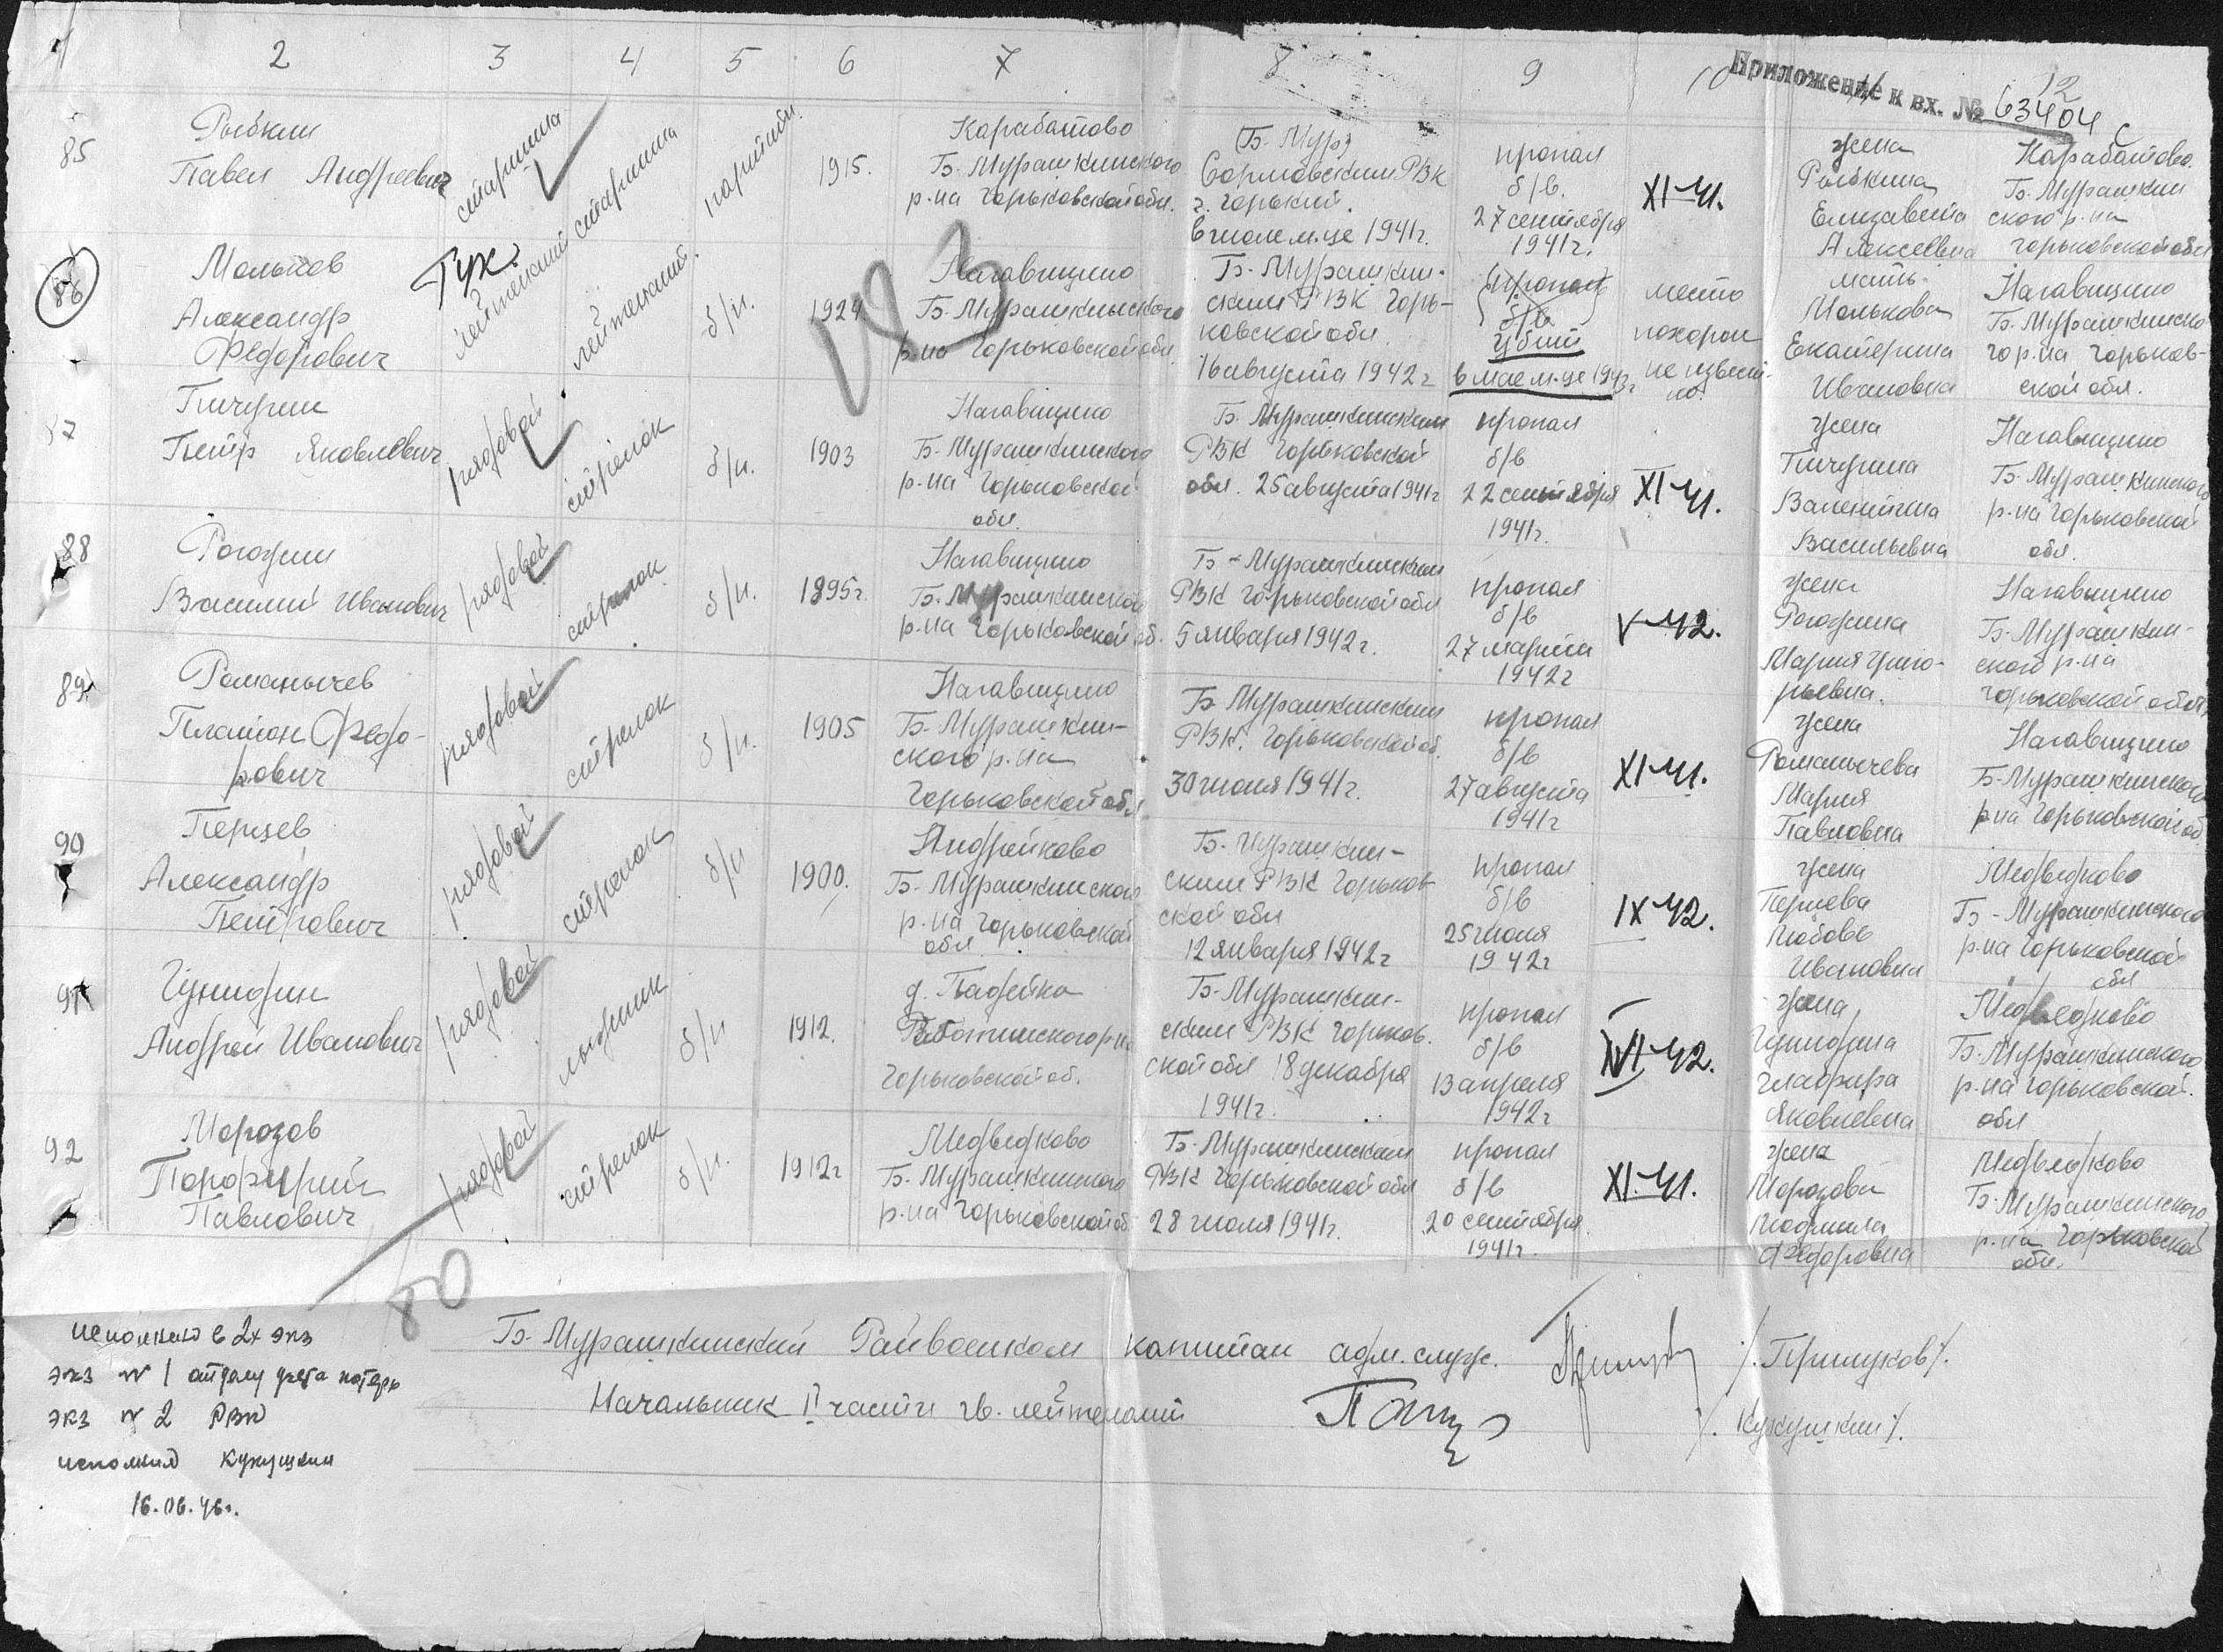 1 2 3 4 5 6 7 8 9 10 11 12
Приложение к вх. № 63404 с
85
Рыбкин
Павел Андреевич
старшина
старшина
партийн.
1915.
Карабатово
Б. Мурашкинского
р-на Горьковской обл.
(Б. Мур)
Сормовским РВК
г. Горький.
в июле м-це 1941г.
пропал
б/в.
27 сентября
1941г.
XI-41.
жена
Рыбкина
Елизавета
Алексеевна
Карабатово.
Б. Мурашкин
ского р-на
Горьковской обл
86
Мольков
Александр
Федорович
лейтенант
лейтенант.
б/п.
1924
Нагавицино
Б. Мурашкинского
р-на Горьковской обл.
Б-Мурашкин-
ским РВК Горь-
ковской обл.
16 августа 1942г
пропал
б/в
убит
в мае м-це 1943г
место
похорон
не извест-
но.
мать.
Молькова
Екатерина
Ивановна
Нагавицино
Б. Мурашкинско-
го р-на Горьков-
ской обл.
87
Пичугин
Петр Яковлевич
рядовой
стрелок
б/п.
1903
Нагавицино
Б-Мурашкинского
р-на Горьковской
обл.
Б. Мурашкинским
РВК Горьковской
обл. 25 августа 1941г
пропал
б/в
22 сентября
1941г.
XI-41.
жена
Пичугина
Валентина
Васильевна
Нагавицино
Б-Мурашкинского
р-на Горьковской
обл.
88
Рогожин
Василий Иванович
рядовой
стрелок
б/п.
1895г.
Нагавицино
Б. Мурашкинского
р-на Горьковской об.
Б-Мурашкинским
РВК Горьковской обл
5 января 1942г.
пропал
б/в
27 марта
1942г
V-42.
жена
Рогожина
Мария Григо-
рьевна.
Нагавицино
Б. Мурашкин-
ского р-на
Горьковской обл.
89
Романычев
Платон Федо-
рович
рядовой
стрелок
б/п.
1905
Нагавицино
Б-Мурашкин-
ского р-на
Горьковской обл
Б Мурашкинским
РВК. Горьковской об.
30 июня 1941г.
пропал
б/в
27 августа
1941г
XI-41.
жена
Романычева
Мария
Павловна
Нагавицино
Б-Мурашкинского
р-на Горьковской об
90
Перцев
Александр
Петрович
рядовой
стрелок
б/п
1900.
Андрейково
Б-Мурашкинского
р-на Горьковской
обл.
Б. Мурашкин-
ским РВК Горьков-
ской обл
12 января 1942г
пропал
б/в
25 июля
1942г
IX-42.
жена
Перцева
Любовь
Ивановна
Медведково
Б-Мурашкинского
р-на Горьковской
обл
91
Гунидин
Андрей Иванович
рядовой
лыжник
б/п
1912.
д. Падейка
Работкинского р-на
Горьковской об.
Б-Мурашкин-
ским РВК Горьков.
ской обл 18 декабря
1941г.
пропал
б/в
13 апреля
1942г
VI-42.
жена
Гунидина
Глафира
Яковлевна
Медведково
Б. Мурашкинского
р-на Горьковской.
обл
92
Морозов
Порфирий
Павлович
рядовой
стрелок
б/п.
1912г
Медведково
Б-Мурашкинского
р-на Горьковской об
Б-Мурашкинским
РВК Горьковской обл
28 июля 1941г.
пропал
б/в
20 сентября
1941г.
XI-41.
жена
Морозова
Людмила
Федоровна
Медведково
Б-Мурашкинского
р-на Горьковской
обл.
80
Б-Мурашкинский Райвоенком капитан адм. служ. /. Примуков/.
Начальник II части гв. лейтенант /. Кукушкин/.
исполнено в 2х экз
экз № 1 отделу учета потерь
экз № 2 РВК
исполнил Кукушкин
16.06.46г.